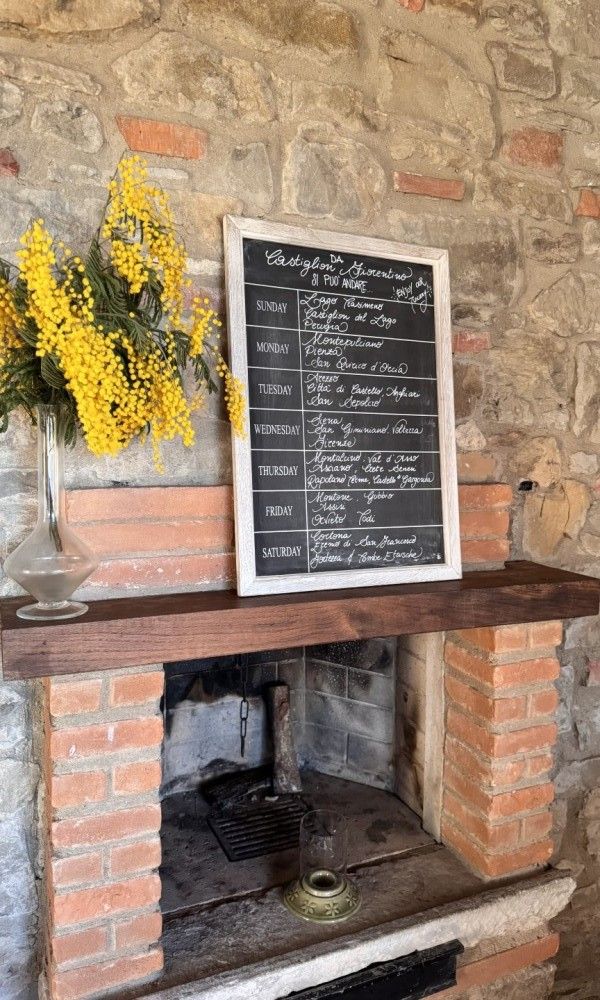 DA
Castiglion Fiorentino
SI PUO' ANDARE
Enjoy our
Tuscany!
SUNDAY
Lago Trasimeno
Castiglion del Lago
Perugia
MONDAY
Montepulciano
Pienza
San Quirico d'Orcia
TUESDAY
Arezzo
Città di Castello, Anghiari
San Sepolcro
WEDNESDAY
Siena
San Gimignano, Volterra
Firenze
THURSDAY
Montalcino, Val d'Asso
Asciano, Crete Senesi
Rapolano Terme, Castello Gargonza
FRIDAY
Montone, Gubbio
Assisi
Orvieto Todi
SATURDAY
Cortona
Eremo di San Francesco
Tombe Etrusche